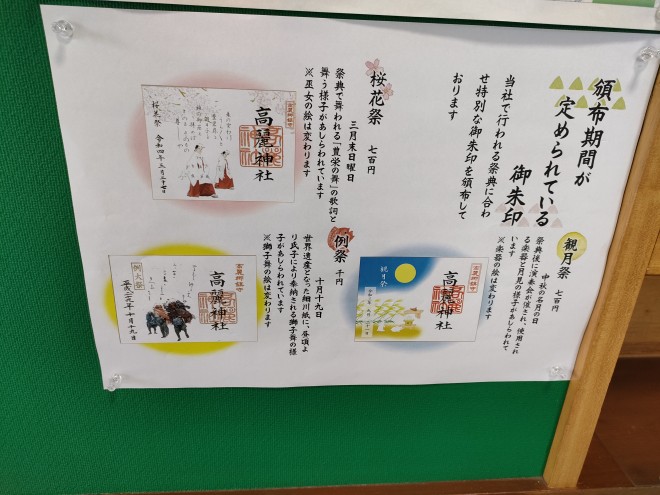 頒布期間が
定められている
御朱印
当社で行われる祭典に合わ
せ特別な御朱印を頒布して
おります
桜花祭 七百円
三月末日曜日
祭典で舞われる「豊栄の舞」の歌詞と
舞う様子があしらわれています
※巫女の絵は変わります
高麗神社
桜花祭 令和四年三月二十七日
観月祭 七百円
中秋の名月の日
祭典後に演奏会が催され、使用され
る楽器と月見の様子があしらわれて
います
※楽器の絵は変わります
観月祭
高麗神社
例祭 千円
十月十九日
世界遺産となった細川紙に、昼頃よ
り氏子により奉納される獅子舞の様
子があしらわれています
※獅子舞の絵は変わります
高麗神社
例大祭
十月十九日